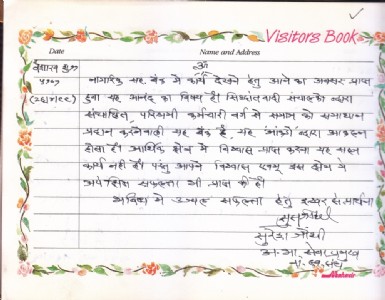 Visitors Book
Date Name and Address
ॐ
वैशाख शुक्ल
नागरिक सह बैंक में कार्य देखने हेतु आने का अवसर प्राप्त
हुवा यह आनंद का विषय है। सिद्धांतवादी संचालकों द्वारा
संचालित, परिश्रमी कर्मचारी वर्ग से समाज को समाधान
प्रदान करनेवाली यह बैंक है, यह आंकड़ों द्वारा
होता है। आर्थिक क्षेत्र में विश्वास प्राप्त करना यह सरल
कार्य नहीं है। परंतु आपने विश्वास एवम् इस क्षेत्र में
अपेक्षित सफलता भी प्राप्त की है।
भविष्य में उज्वल सफलता हेतु इश्वर से प्रार्थना
सेवा प्रमुख